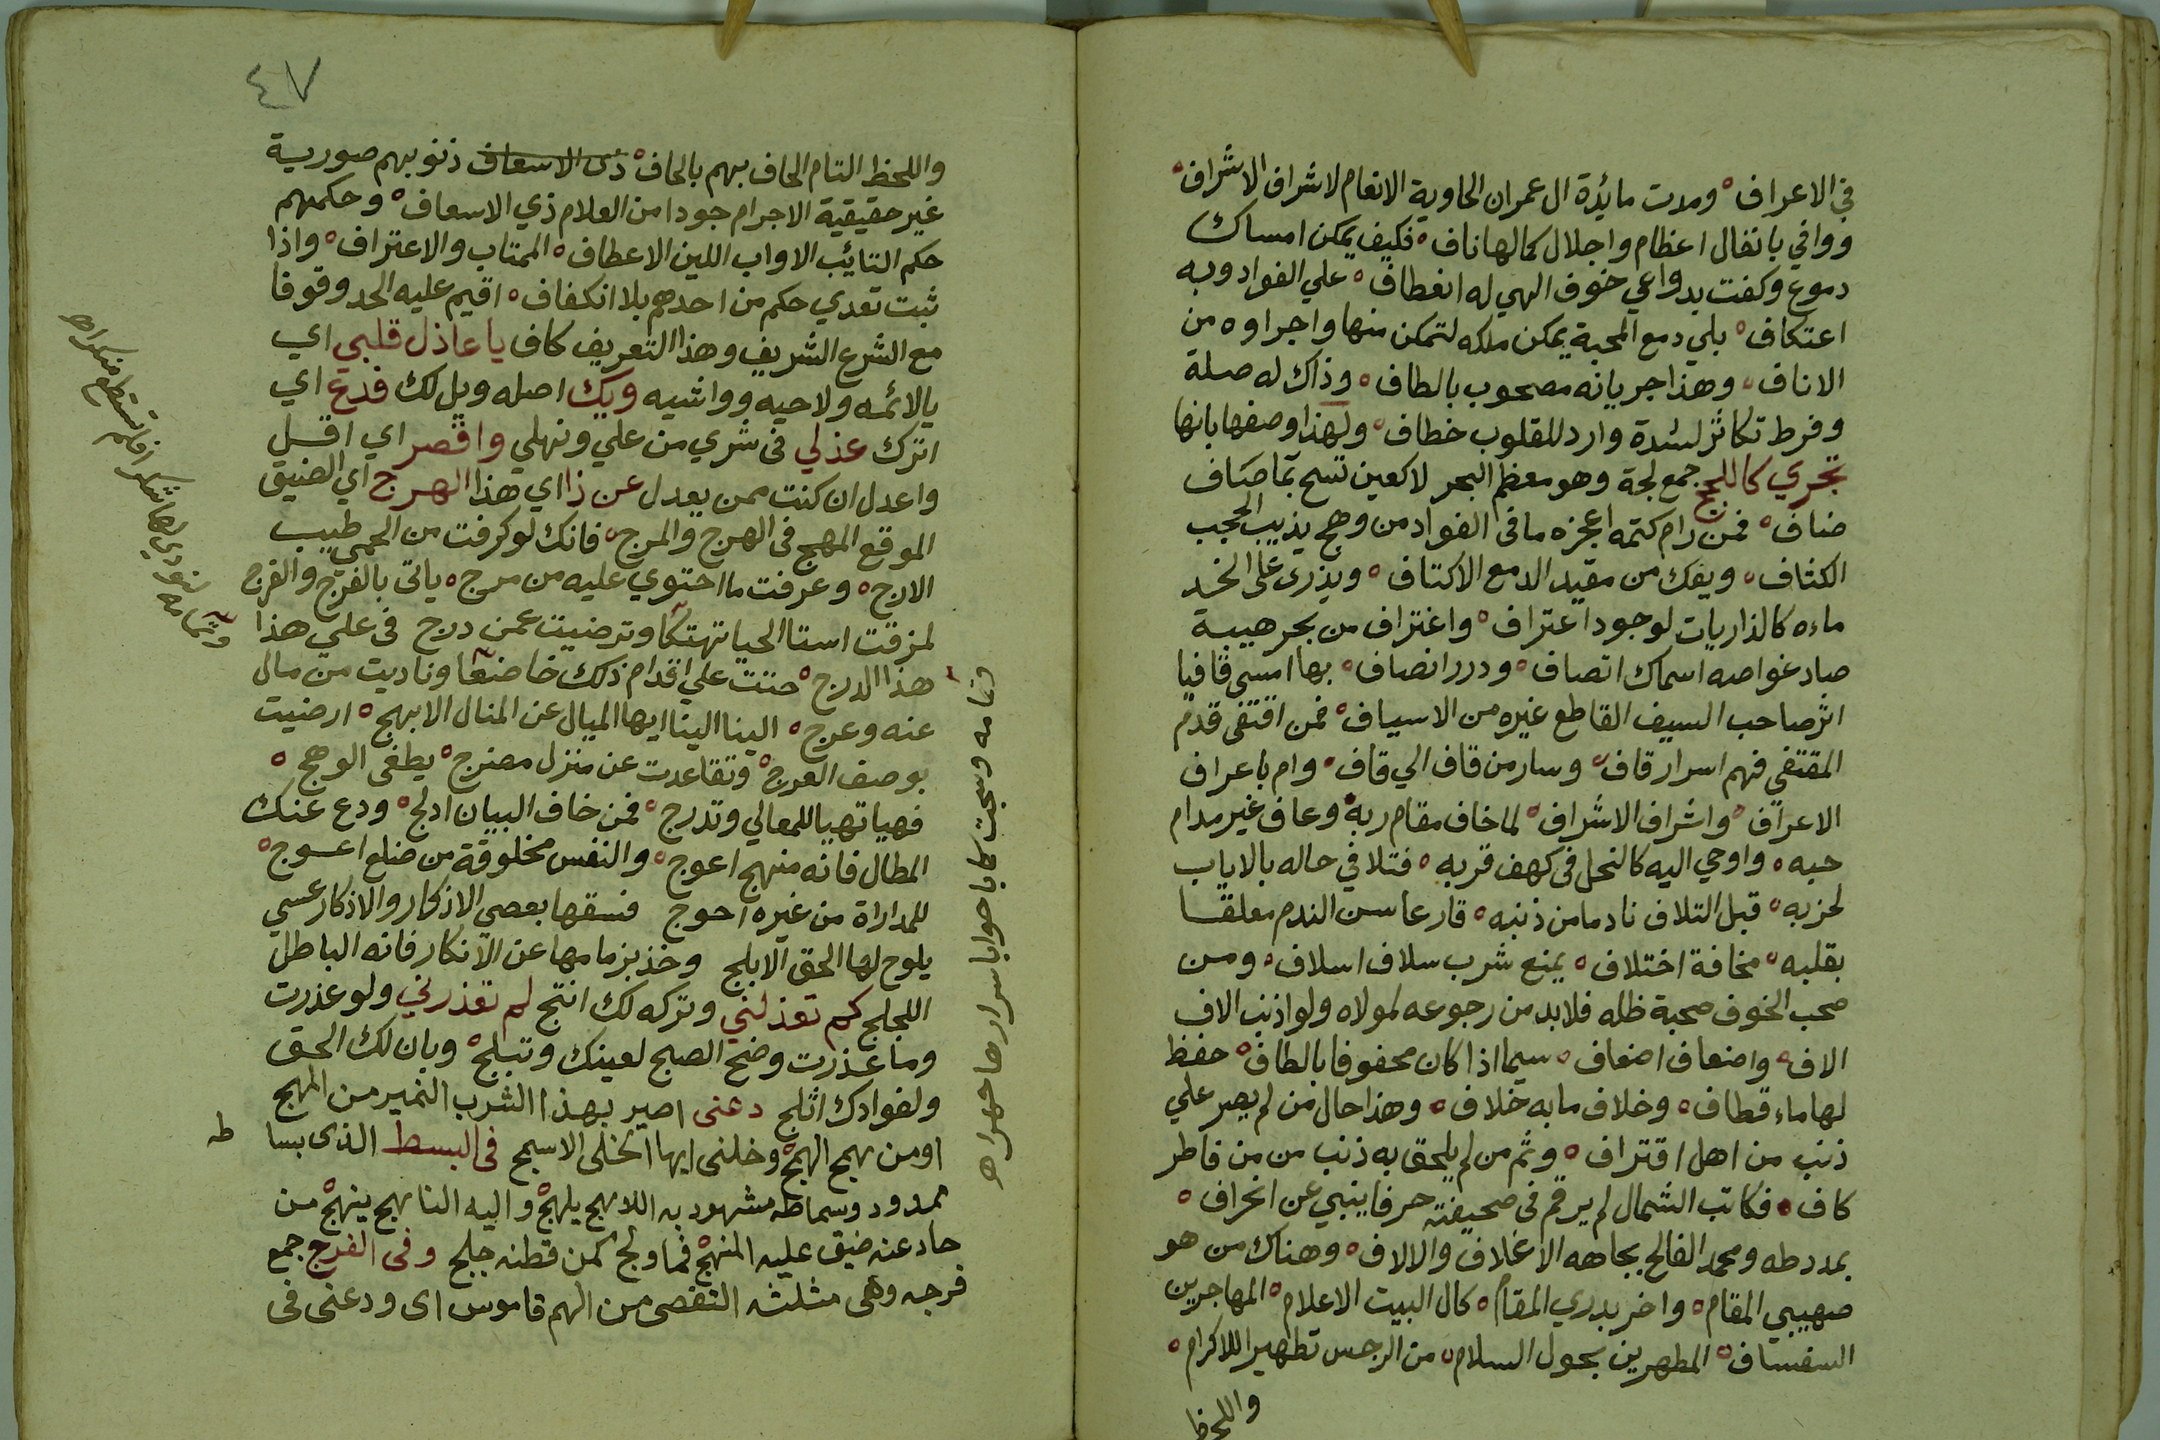 في الاعراف ومدت مائدة ال عمران الحاوية الانعام لاشراف الاشراف
ووافي بانفال اعظام واجلال كمالها ناف فكيف يمكن امساك
دموع وكفت بدواعي خوف الهي له انعطاف علي الفواد وبه
اعتكاف بلي دمع المحبة يمكن ملكه لتمكن منها واجراوه من
الاناف وهذا جريانه مصحوب بالطاف وذاك له صلة
وفرط تكاثر لشدة وارد للقلوب خطاف ولهذا وصفها بانها
تجري كاللجج جمع لجة وهو معظم البحر لا كعين تسح بما صاف
ضاف فمن رام كتمه اعجزه ما في الفواد من وهج يذيب الحجب
الكثاف ويفك من مقيد الدمع الاكتاف ويذري علي الخد
ماءه كالذاريات لوجود اعتراف واغتراف من بحر هيبة
صاد غواصه اسماك اتصاف ودرر انصاف بها امسي قافيا
اثر صاحب السيف القاطع غيره من الاسياف فمن اقتفي قدم
المقتفي فهم اسرار قاف وسار من قاف الي قاف وام باعراف
الاعراف واشراف الاشراف لما خاف مقام ربه وعاف غير مدام
حبه واوحي اليه كالنحل في كهف قربه فتلافي حاله بالاياب
لحزبه قبل التلاف نادما من ذنبه قارعا سن الندم معلقا
بقلبه مخافة اختلاف يمنع شرب سلاف اسلاف ومن
صحب الخوف صحبة ظله فلابد من رجوعه لمولاه ولو اذنب الاف
الاف واضعاف اضعاف سيما اذا كان محفوفا بالطاف حفظ
لها ماء قطاف وخلاف ما به خلاف وهذا حال من لم يصر علي
ذنب من اهل اقتراف وثم من لم يلحق به ذنب من من فاطر
كاف فكاتب الشمال لم يرقم في صحيفته حرفا ينبي عن انحراف
بمدد طه ومحمد الفالح بجاهه الاغلاف والالاف وهناك من هو
صهيبي المقام واخر بدري المقام كال البيت الاعلام المهاجرين
السفساف المطهرين بحول السلام من الرجس تطهيرا للاكرام
واللحظ
٤٧
واللحظ التام الحاف بهم بالحاف ذي الاسعاف ذنوبهم صورية
غير حقيقية الاجرام جودا من العلام ذي الاسعاف وحكمهم
حكم التائب الاواب اللين الاعطاف المتاب والاعتراف واذا
ثبت تعدي حكم من احدهم بلا انكفاف اقيم عليه الحد وقوفا
مع الشرع الشريف وهذا التعريف كاف يا عاذل قلبي اي
يا لائمه ولاحيه وواشيه ويك اصله ويل لك فدع اي
اترك عذلي في شربي من علي ونهلي واقصر اي اقل
واعدل ان كنت ممن يعدل عن ذا اي هذا الهرج اي الضيق
الموقع المهج في الهرج والمرج فانك لو كرفت من الحمي طيب
الارج وعرفت ما احتوي عليه من مرج ياتي بالفرج والفرج
لمزقت استا الحيا تهتكا وترضيت عمن درج في علي هذا
هذا الدرج حتت علي اقدام ذلك خاضعا وناديت من مال
عنه وعرج الينا الينا ايها الميال عن المنال الابهج ارضيت
بوصف العرج وتقاعدت عن منزل مضرج يطفي الوهج
فهيا تهيا للمعالي وتدرج فمن خاف البيان ادلج ودع عنك
المطال فانه منهج اعوج والنفس مخلوقة من ضلع اعوج
للمداراة من غيره احوج فسقها بعصي الاذكار والاذكار عسي
يلوح لها الحق الابلج وخذ بزمامها عن الانكار فانه الباطل
اللجلج كم تعذلني وتركه لك انتج لم تعذرني ولو عذرت
وما عذرت وضح الصبح لعينك وتبلج وبان لك الحق
ولفوادك اثلج دعني اصير بهذا الشرب النمير من المهج
او من يهج الهمج وخلني ايها الخلي الاسمج في البسط الذي بسا
طه
ممدود وسماطه مشهود به اللاهج يلهج واليه الناهج ينهج من
حاد عنه ضيق عليه المنهج فما ولج كمن قطنه جلج وفي الفرج جمع
فرجه وهي مثلثه التفصي من الهم قاموس اي ودعني في